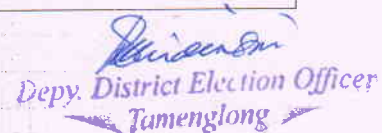 Depy. District Election Officer
Tamenglong